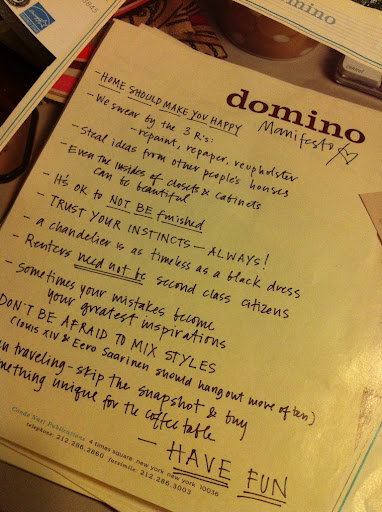 domino
domino
Manifesto
- HOME SHOULD MAKE YOU HAPPY
- We swear by the 3 R's:
- repaint, repaper, reupholster
- Steal ideas from other people's houses
- Even the insides of closets & cabinets
can be beautiful
- It's ok to NOT BE finished
- TRUST YOUR INSTINCTS - ALWAYS!
- a chandelier is as timeless as a black dress
- Renters need not be second class citizens
- Sometimes your mistakes become
your greatest inspirations
DON'T BE AFRAID TO MIX STYLES
(Louis XIV & Eero Saarinen should hang out more often)
traveling - skip the snapshot & buy
something unique for the coffee table
- HAVE FUN
Condé Nast Publications 4 times square new york new york 10036
telephone: 212.286.2860 facsimile: 212.286.3003